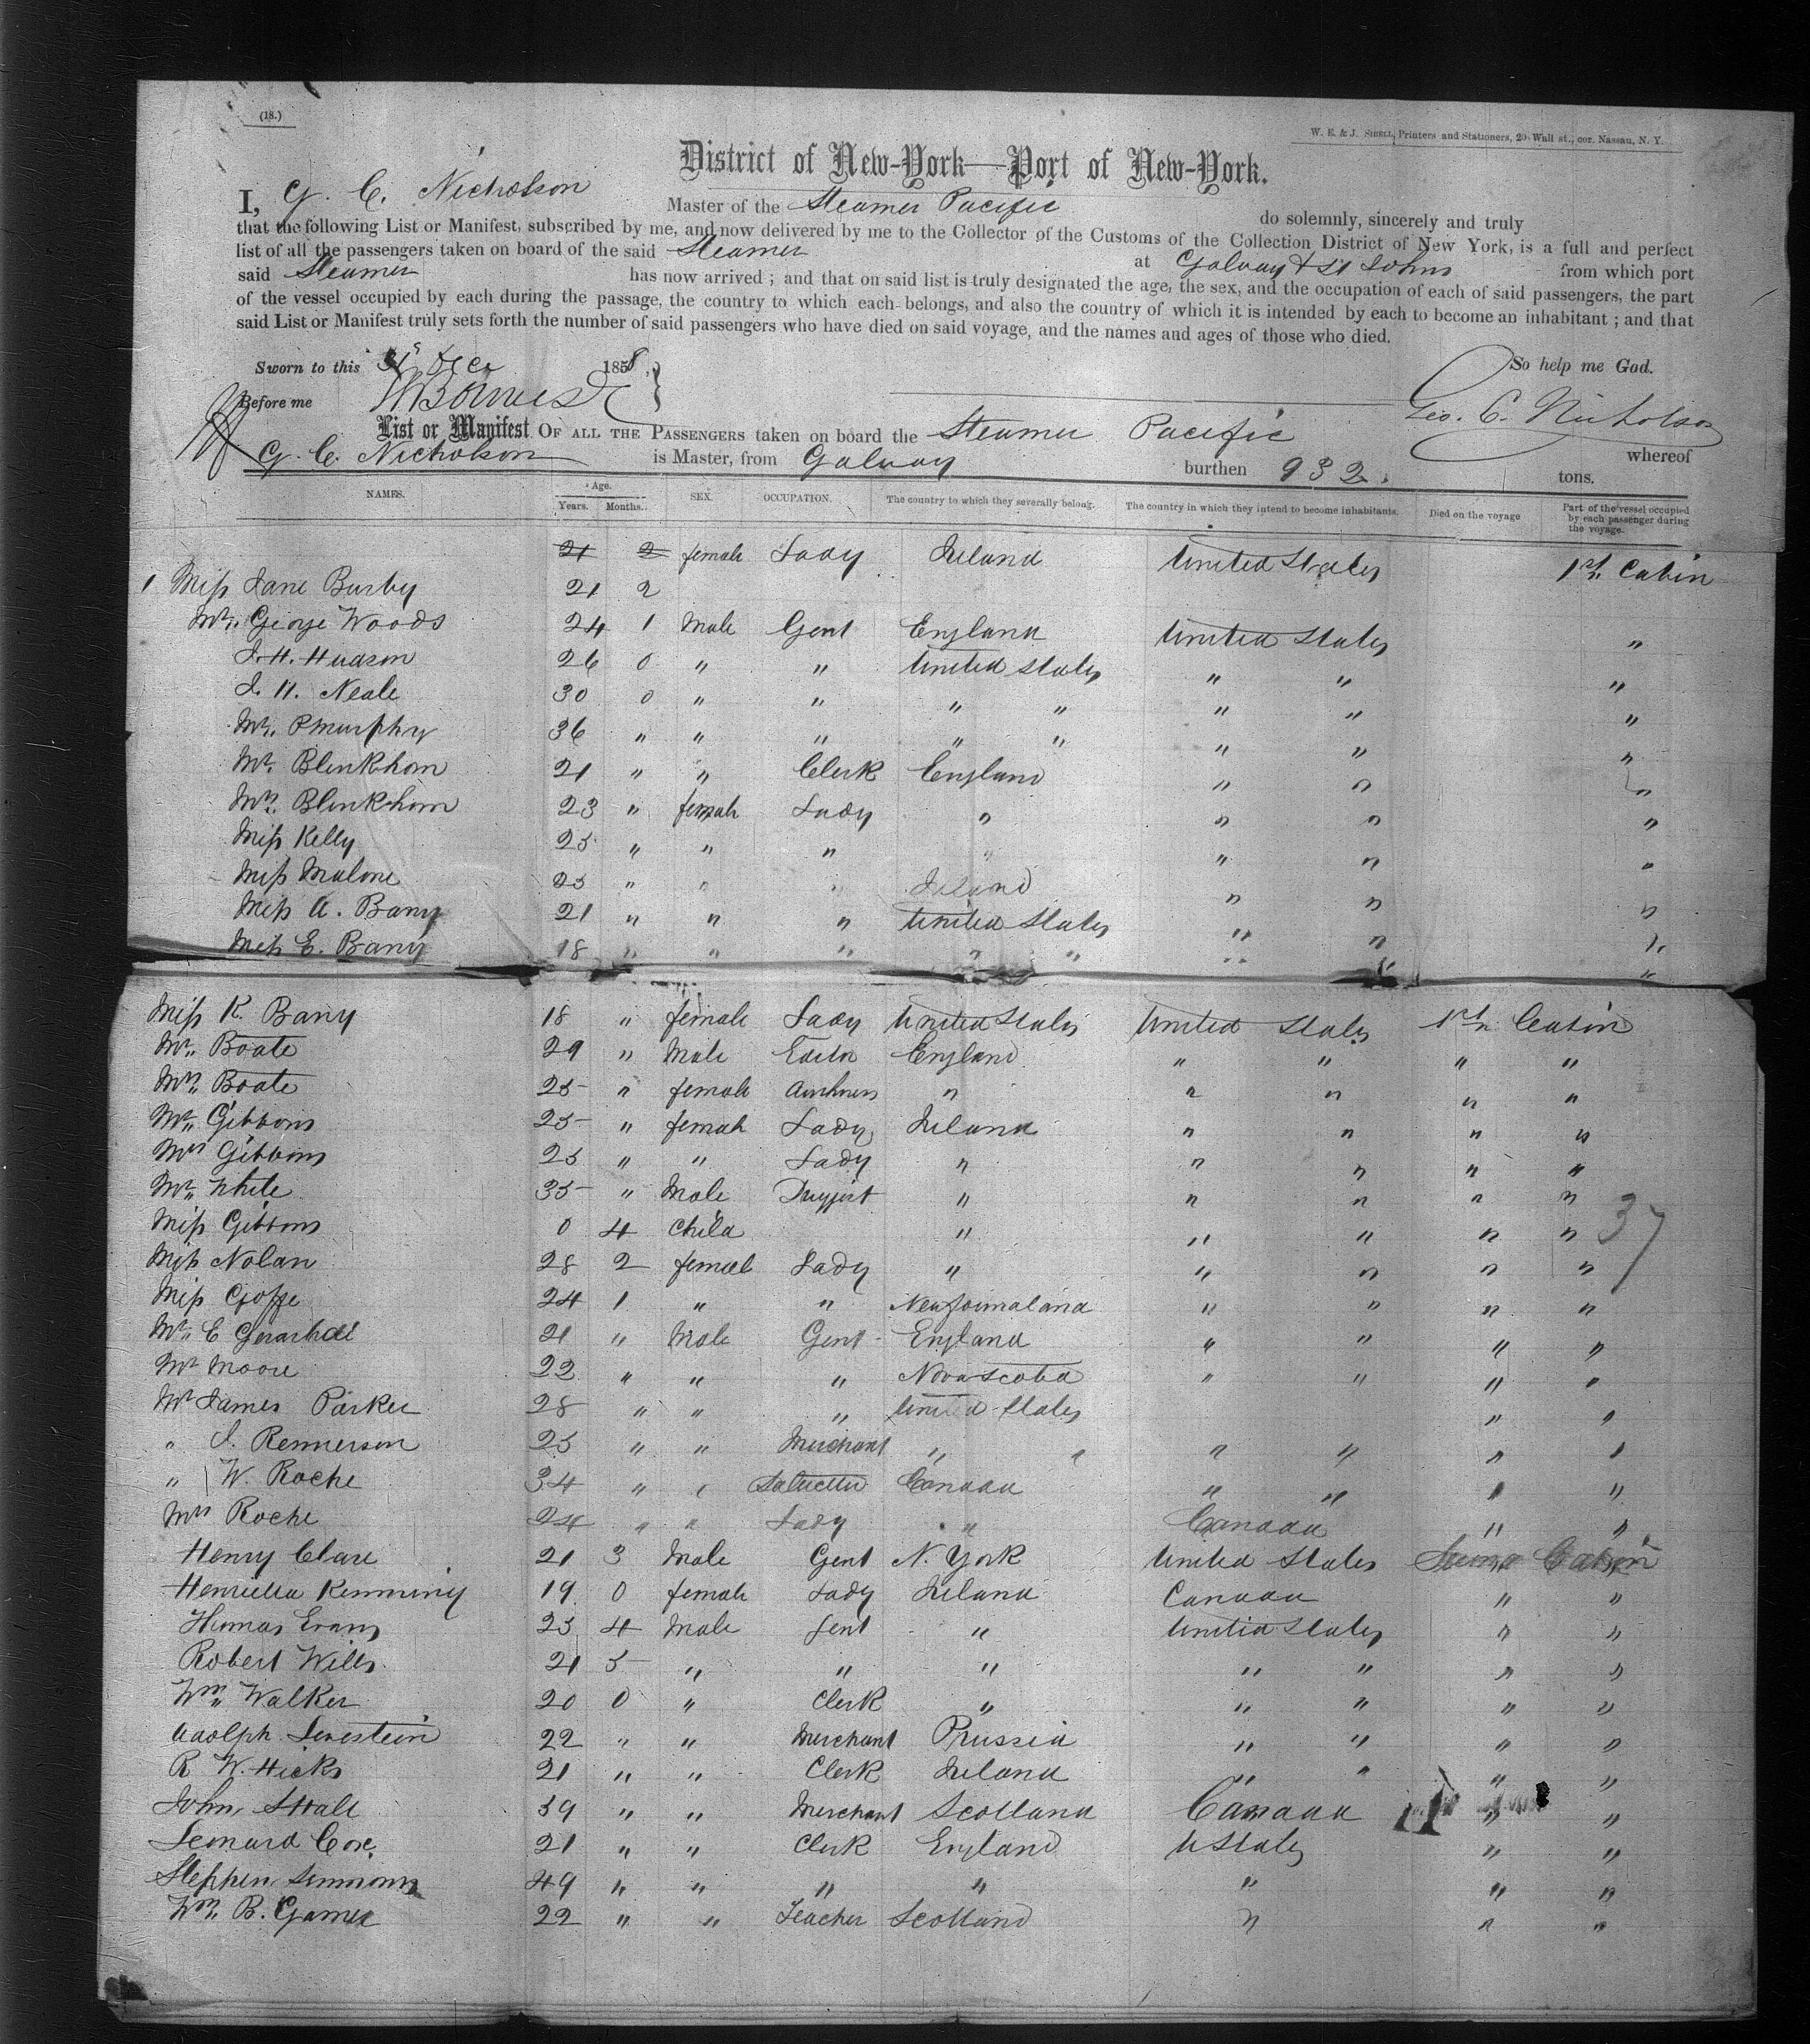 (18.)
W. E. & J. SIBELL, Printers and Stationers, 20 Wall st., cor. Nassau, N. Y.
District of New-York—Port of New-York.
I, G. C. Nicholson Master of the Steamer Pacific do solemnly, sincerely and truly
that the following List or Manifest, subscribed by me, and now delivered by me to the Collector of the Customs of the Collection District of New York, is a full and perfect
list of all the passengers taken on board of the said Steamer at Galway & St Johns from which port
said Steamer has now arrived ; and that on said list is truly designated the age, the sex, and the occupation of each of said passengers, the part
of the vessel occupied by each during the passage, the country to which each belongs, and also the country of which it is intended by each to become an inhabitant ; and that
said List or Manifest truly sets forth the number of said passengers who have died on said voyage, and the names and ages of those who died.
Sworn to this 31s Dec 1858, So help me God.
Before me Geo. C. Nicholson
List or Manifest OF ALL THE PASSENGERS taken on board the Steamer Pacific whereof
G. C. Nicholson is Master, from Galway burthen 932. tons.
NAMES. Age. Years. Months. SEX. OCCUPATION. The country to which they severally belong. The country in which they intend to become inhabitants. Died on the voyage Part of the vessel occupied by each passenger during the voyage.
21 2 female Lady Ireland United States 1st Cabin
1 Miss Jane Burby 21 2
Mr. George Woods 24 1 Male Gent England United States "
J. H. Hudson 26 0 " " United States " " "
J. H. Neale 30 0 " " " " " " "
Mr. P Murphy 36 " " " " " " " "
Mr. Blenkhorn 21 " " Clerk England " " "
Mrs. Blenkhorn 23 " female Lady " " " "
Miss Kelly 25 " " " " " " "
Miss Malone 25 " " " Ireland " " "
Miss A. Barry 21 " " " United States " " "
Miss E. Barry 18 " " " " " " " "
Miss K. Barry 18 " female Lady United States United States 1st Cabin
Mr. Boate 29 " Male Editor England " " " "
Mrs. Boate 25 " female Authoress " " " " "
Mr. Gibbons 25 " female Lady Ireland " " " "
Mrs Gibbons 25 " " Lady " " " " "
Mr. White 35 " Male Druggist " " " " "
Miss Gibbons 0 4 Child " " " " " 37
Miss Nolan 28 2 female Lady " " " " "
Miss Goffe 24 1 " " Newfoundland " " " "
Mr. E 21 " Male Gent England " " " "
Mr Moore 22 " " " Nova Scotia " " " "
Mr James Parker 28 " " " United States " "
" J. Rennerson 25 " " Merchant " " " " " "
" W. Roche 34 " " Canada " " " "
Mrs Roche 24 " " Lady " Canada " "
Henry Clare 21 3 Male Gent N. York United States Cabin
Henrietta Kemming 19 0 female Lady Ireland Canada " "
Thomas Evans 23 4 Male Gent " United States " "
Robert Wills 21 5 " " " " " " "
Wm. Walker 20 0 " Clerk " " " " "
Adolph Lewestein 22 " " Merchant Prussia " " " "
R W. Hicks 21 " " Clerk Ireland " " " "
John Stall 39 " " Merchant Scotland Canada " "
Leonard Cox 21 " " Clerk England U States " "
Stephen Simmons 49 " " " " " " "
Wm. B. Games 22 " " Teacher Scotland " " "